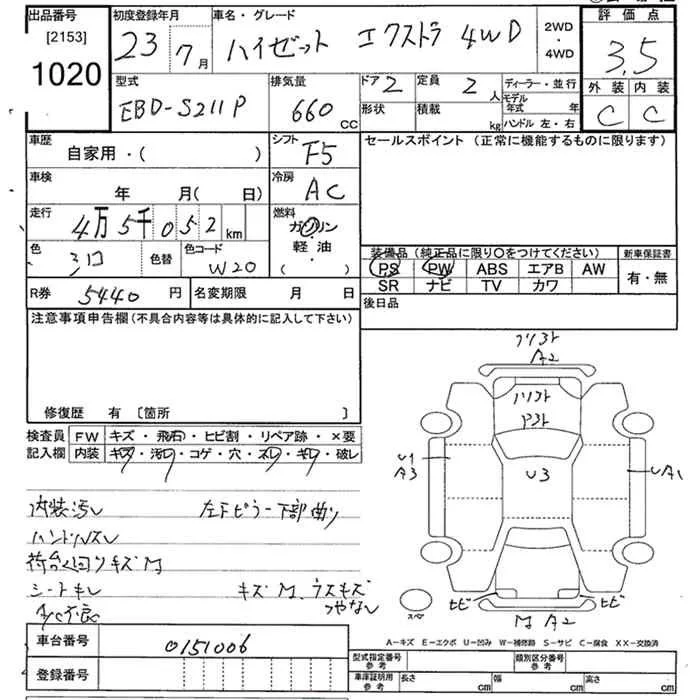 出品番号 初度登録年月 車名・グレード 2WD・4WD 評価点
[2153] 1020 23年7月 ハイゼット エクストラ 4WD 3.5
型式 排気量 ドア 2 定員 2人 ディーラー・並行 外装 内装
EBD-S211P 660cc 形状 積載 kg モデル年式 年 ハンドル 左・右 C C
車歴 自家用・( ) シフト F5 セールスポイント (正常に機能するものに限ります)
車検 年 月(日) 冷房 AC
走行 4万5千052km 燃料 ガソリン 軽油 ・( )
色 シロ 色替 色コード W20 装備品 (純正品に限り○をつけてください) 新車保証書
PS PW ABS エアB AW 有・無
R券 5440円 名変期限 月 日 SR ナビ TV カワ
注意事項申告欄 (不具合内容等は具体的に記入して下さい) 後日品
A2
修復歴 有 [箇所 ]
検査員 FW キズ・飛石・ヒビ割・リペア跡・×要
記入欄 内装 キズ・汚レ・コゲ・穴・スレ・キレ・破レ
U1 A3 U3 UA1
内装汚レ 左下ピラー下部曲り
ハンドルスレ
キズM
シートキレ キズM ウスキズ
A/C不良 つやなし
スペ ヒビ ヒビ
M A2
A－キズ E－エクボ U－凹み W－補修跡 S－サビ C－腐食 XX－交換済
車台番号 0151006 型式指定番号 参考 類別区分番号 参考
登録番号 車庫証明用 参考 長さ cm 幅 cm 高さ cm